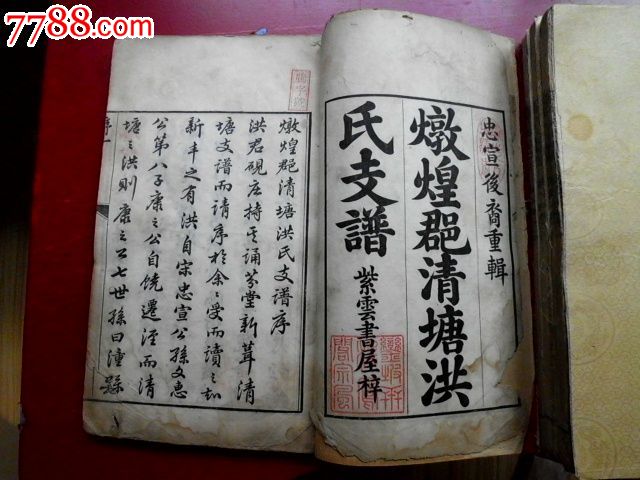 7788.com
忠宣後裔重輯
燉煌郡清塘洪
氏支譜
紫雲書屋梓
燉煌郡清塘洪氏支譜序
洪君硯庄持其誦芬堂新葺清
塘支譜而請序於余余受而讀之知
新丰之有洪自宋忠宣公孫文惠
公第八子康之公自饒遷涇而清
塘之洪則康之公七世孫曰潼縣
序一